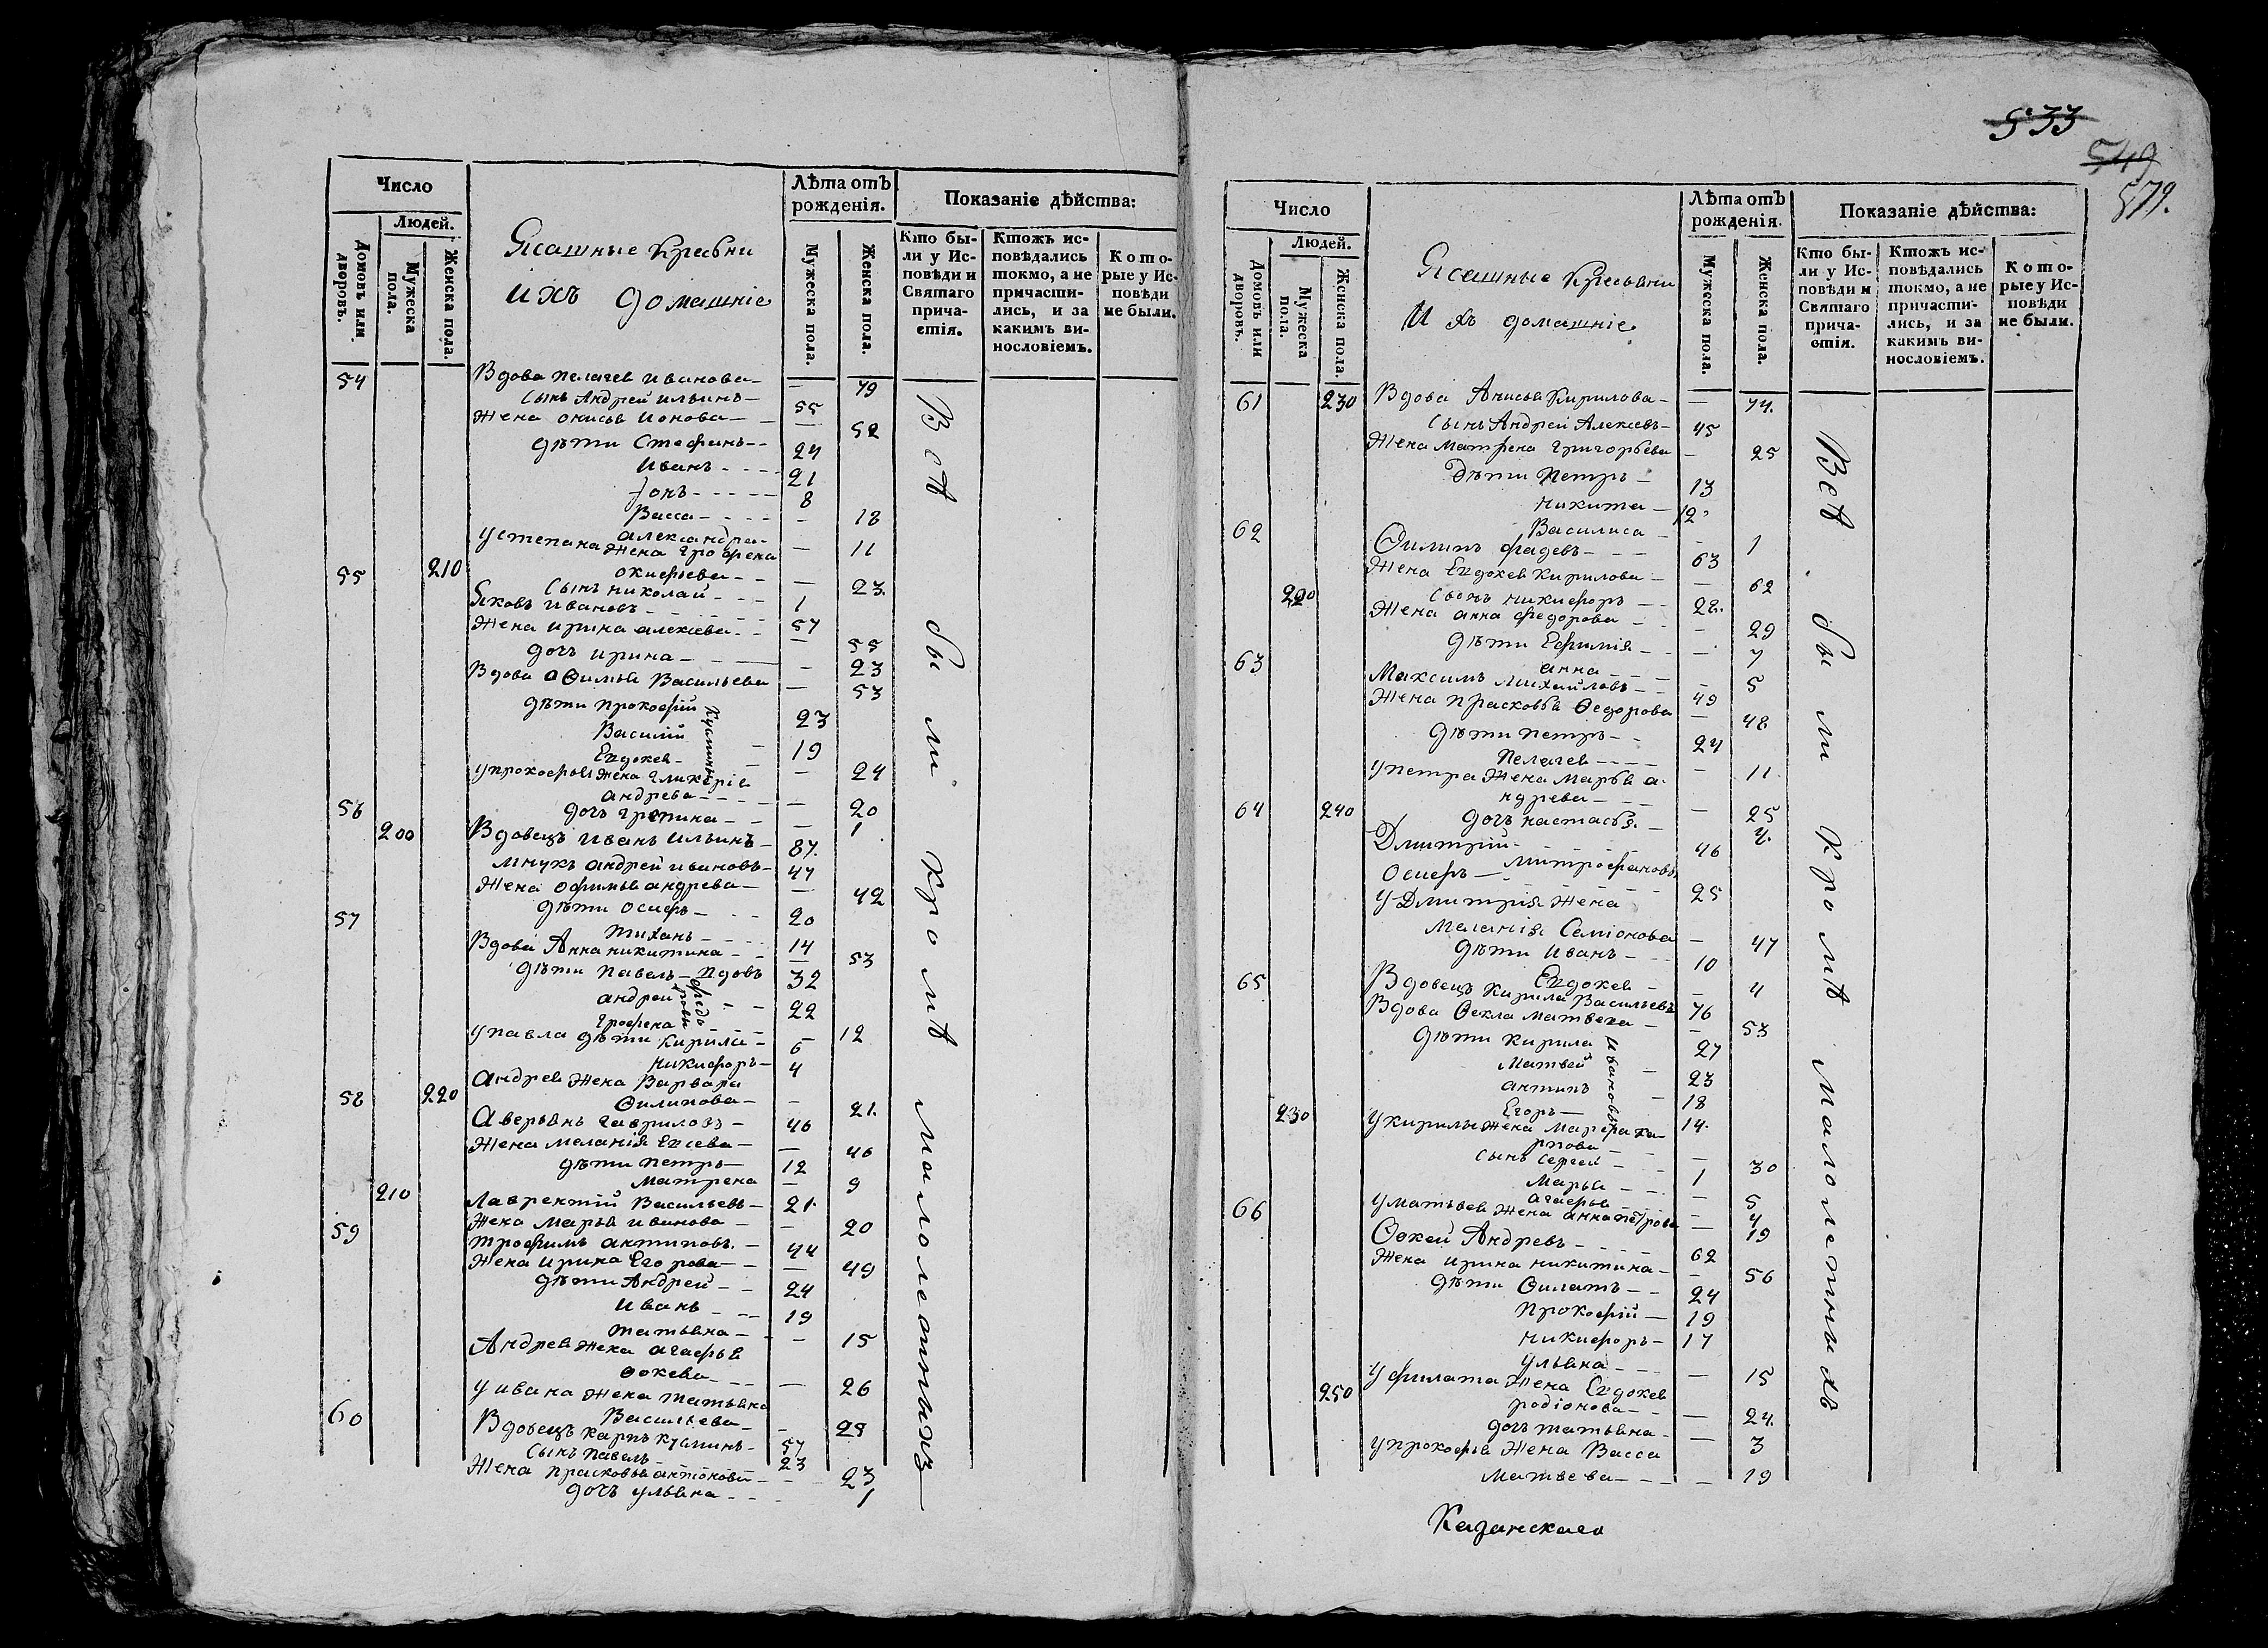 Число
Людей.
Домовъ или дворовъ.
Мужеска пола.
Женска пола.
Ясашные Кресьни
ихъ домашніе
Лѣта отъ рожденія.
Мужеска пола.
Женска пола.
Показаніе дѣйства:
Кто бы-
ли у Ис-
повѣди и
Святаго
прича-
стія.
Ктожъ ис-
повѣдались
токмо, а не
причасти-
лись, и за
какимъ ви-
нословіемъ.
Кото-
рые у Ис-
повѣди
не были.
54 Вдова Пелагея Иванова — — 79
сынъ Андрей Ильинъ — 55
Жена Онисья Ионова — — 52
дѣти Стефанъ -- 24
Иванъ - - - - 21
Ионъ - - - - - 8
Васса - - - - - 18
Александра - — 11
У Степана Жена Грофена
210 Окифьева - - — 23.
Сынъ Николай - - - 1
55 Яковъ Ивановъ - - - - - 57
Жена Ирина Алексѣева - - — 55
дочь Ирина - - - 23
Вдова Офимья Васильева — 53
дѣти Прокофий 23
Василий - 19
Кузмины
Евдокея - - — 24
У Прокофья Жена Гликерія
Андрева - - - - — 20
дочь Грепина - - — 1
56 200 Вдовецъ Иванъ Ильинъ - 87.
Мнукъ Андрей Ивановъ - 47
Жена Офимья Андрева — — 42
дѣти Осифъ - - - 20
Тиханъ - - - 14
57 Вдова Анна Никитина - - — 53
дѣти Павелъ - вдовъ 32
Андрей - - 22
Федоровы
Грофена - - - 12
У Павла дѣти Кирила - 6
Никифоръ - 4
Андрея Жена Варвара
220 Филипова - — 21.
58 Аверьянъ Гавриловъ - 46
Жена Меланія Евсева — — 46
дѣти Петръ — 12
Матрена — 9
210 Лаврентій Васильевъ - 21.
Жена Марья Иванова - - 20
59 Трофимъ Антиповъ. - 44
Жена Ирина Егорова - - — 49
дѣти Андрей - - 24
Иванъ - - - 19
Татьяна - - - 15
Андрея Жена Агафья
Фокева - - - — 26
У Ивана Жена Татьяна
Васильева - - 25
60 Вдовецъ Карпъ Кузминъ - 57
Сынъ Павелъ - 23
Жена Прасковья Антонова - - 23
дочь Ульяна - - - 1
Всѣ были кромѣ малолетныхъ
533
549
579.
Число
Людей.
Домовъ или дворовъ.
Мужеска пола.
Женска пола.
Ясашные Кресьяни
И хъ домашніе
Лѣта отъ рожденія.
Мужеска пола.
Женска пола.
Показаніе дѣйства:
Кто бы-
ли у Ис-
повѣди и
Святаго
прича-
стія.
Ктожъ ис-
повѣдались
токмо, а не
причасти-
лись, и за
какимъ ви-
нословіемъ.
Кото-
рые у Ис-
повѣди
не были.
61 230 Вдова Анисья Кирилова - — 74.
Сынъ Андрей Алексевъ - 45
Жена Матрена Григорьева - 25
Дѣти Петръ - 13
Никита - 12
Василиса - - 1
62 Филипъ Фадевъ - - - 63
Жена Евдокея Кирилова - — 62
220 Сынъ Никифоръ - - 28.
Жена Анна Федорова - - - 29
дѣти Ефимія - - - 7
Анна - - - - 5
63 Максимъ Михайловъ - - 49
Жена Прасковья Федорова — 48
дѣти Петръ - - 24
Пелагея - - - - - 11.
У Петра Жена Марья А-
240 ндрева - - - — 25
дочь Настасья. - 4.
64 Дмитрий - - - - 46
Митрофановы
Осифъ - - - - - 25
У Дмитрія Жена
Меланія Семіонова - 47
дѣти Иванъ - - - 10
Евдокея - - 4
65 Вдовецъ Кирила Васильевъ 76
Вдова Фекла Матвеева - - 53
дѣти Кирила 27
Матвей - 23
Антипъ - 18
Ивановы
230 Егоръ - 14.
У Кирилы Жена Марфа Ка-
рпова - - — 30
Сынъ Сергей - - - 1
Марья - - - — 5
Агафья - - - 4
У Матвея Жена Анна Петрова — 19
66 Фокей Андревъ - - - - 62
Жена Ирина Никитина - - 56
дѣти Филатъ - - 24
Прокофий - 19
Никифоръ - 17
Ульяна - - - — 15
У Филата Жена Евдокея
250 Родіонова - - — 24.
дочь Татьяна - — 3
У Прокофья Жена Васса
Матвева - - - - 19
Всѣ были кромѣ малолетныхъ
Казанскаго